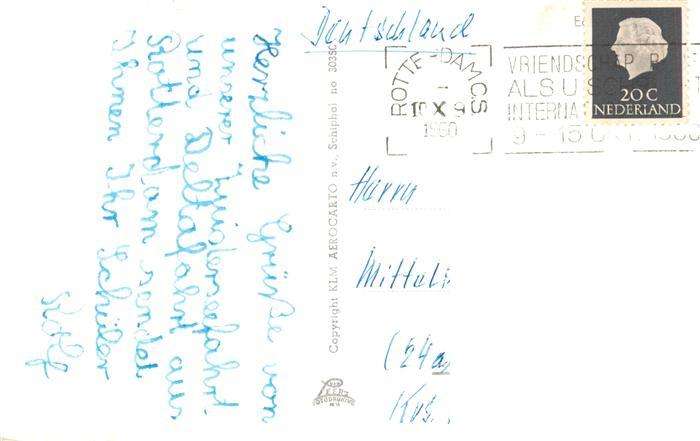 Herzliche Grüße von
unserer Zuiderseefahrt
und Deltafahrt aus
Rotterdam sendet
Ihnen Ihr Schüler
Rolf
Copyright KLM AEROCARTO n.v., Schiphol no 30350
Deutschland
ROTTERDAM CS
10 X 9
1960
VRIENDSCHAP
ALS U SCH
INTERNA
9 - 15 OKT. 1960
20 C
NEDERLAND
Herrn
Mittels
(24a
Krs.